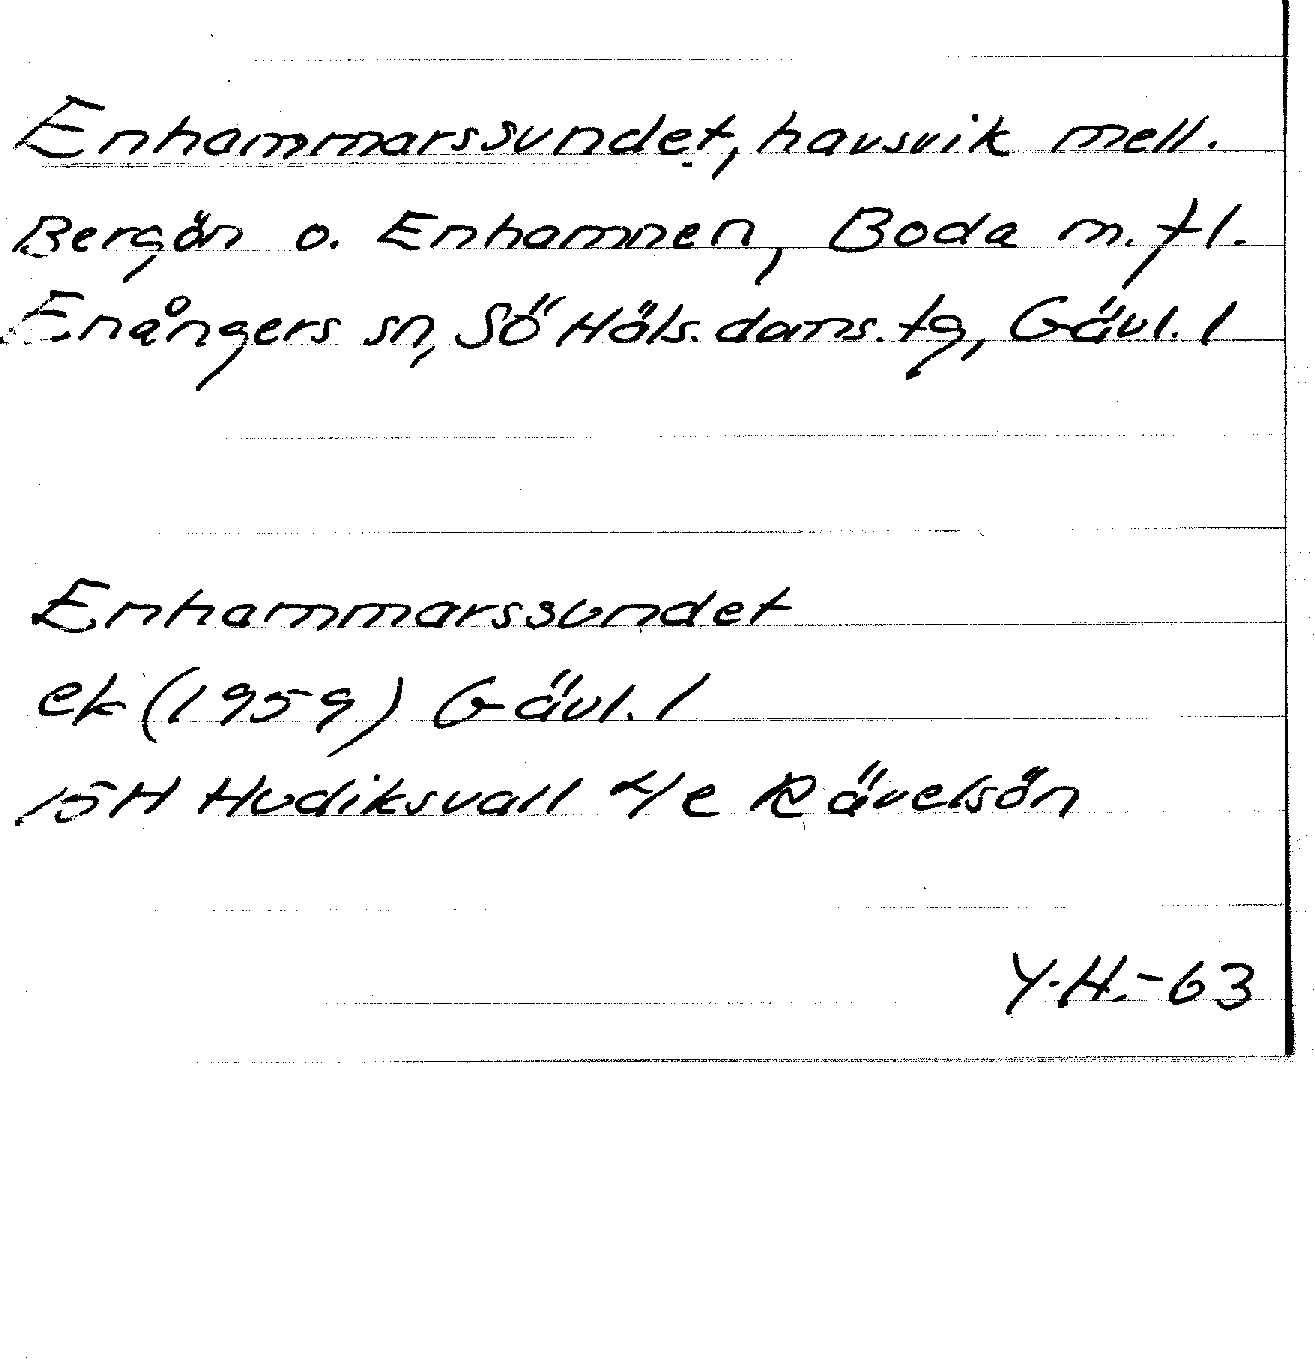 Enhammarssundet, havsvik mell.
Bergön o. Enhamnen, Boda m. fl.
Enångers sn, Sö Häls. doms. tg, Gävl. l
Enhammarssundet
ek (1959) Gävl. l
15H Hudiksvall 4/e Rävelsön
Y.H.-63